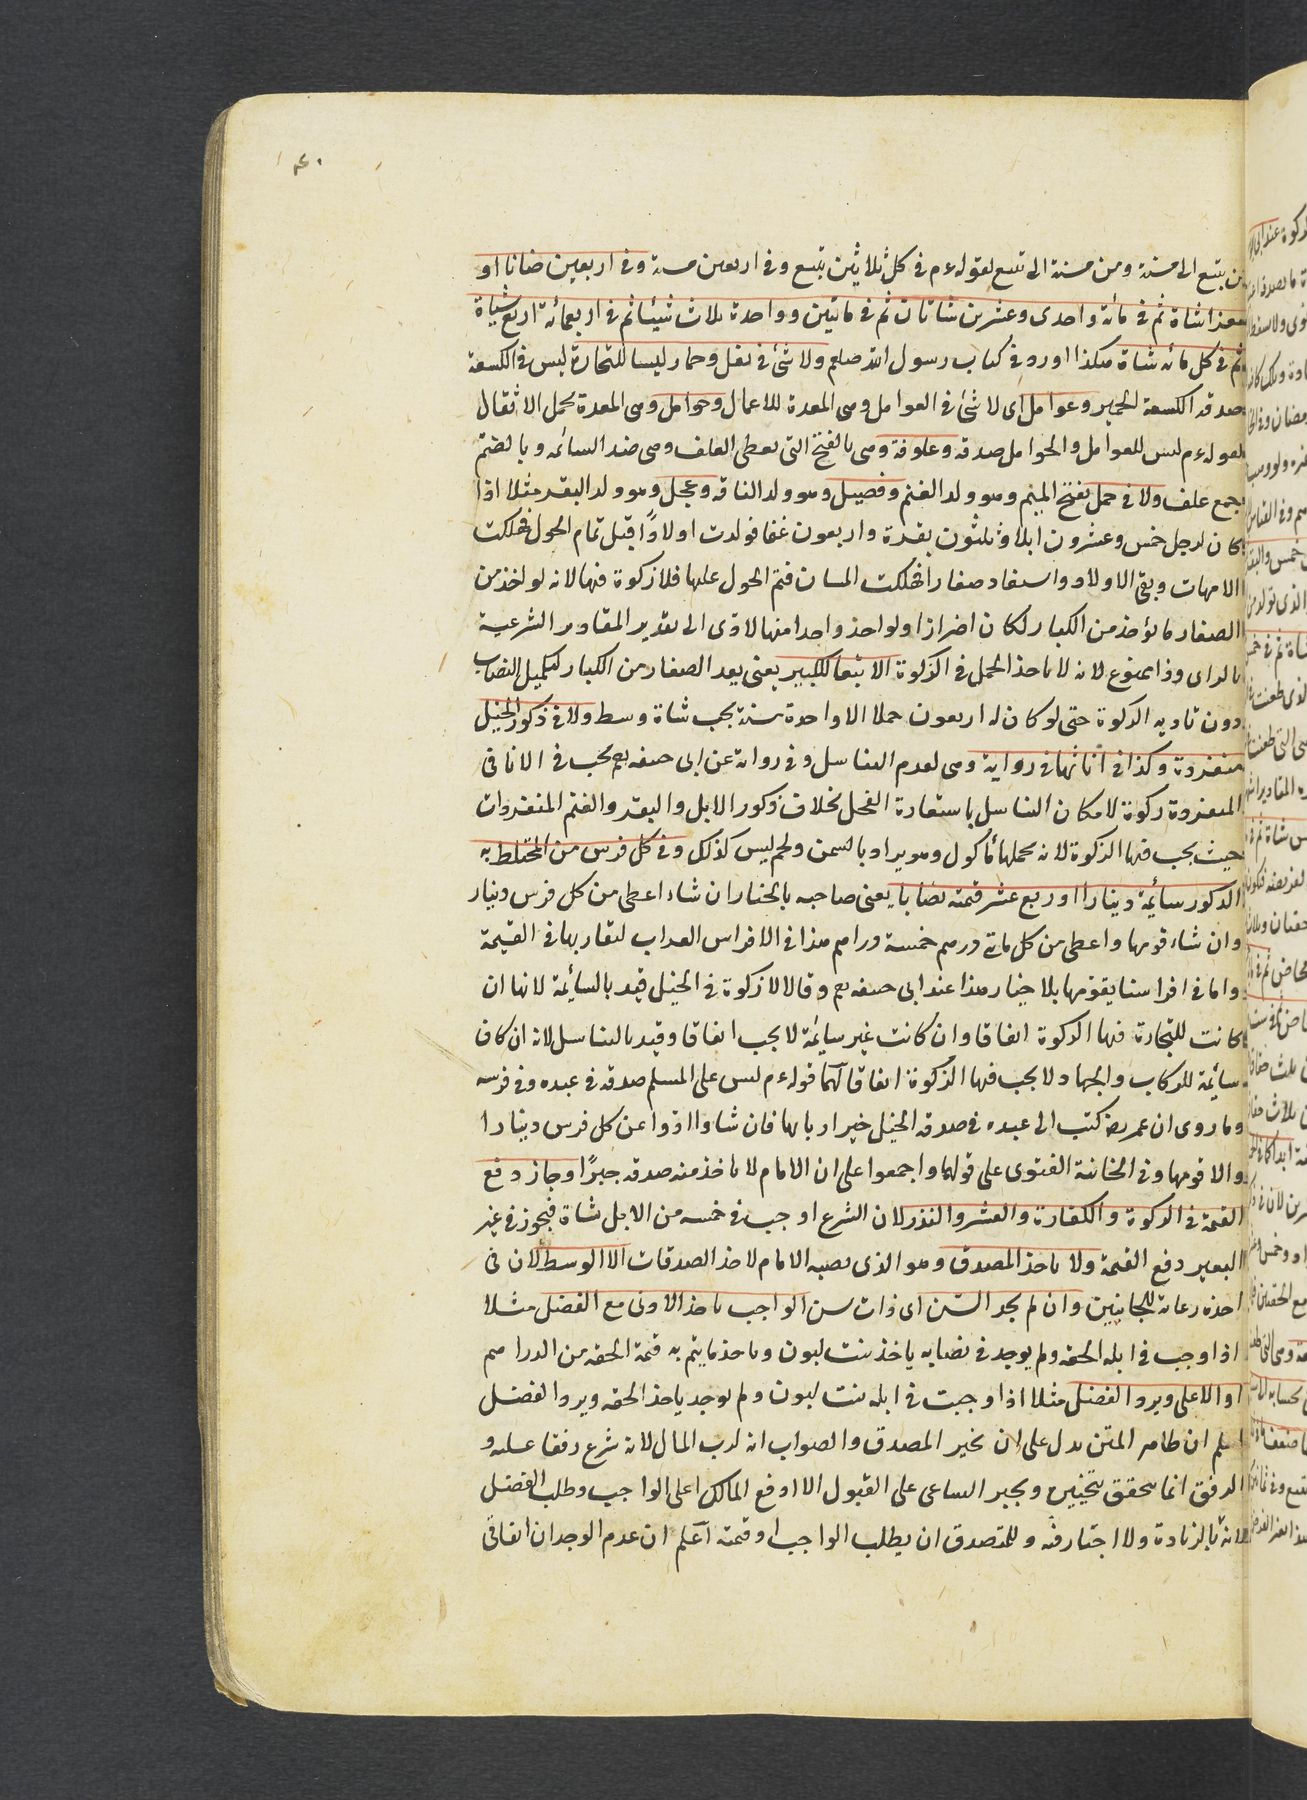 ٤٠
من تبيع الى مسنة ومن مسنة الى تبيع لقوله عم في كل ثلاثين تبيع وفي اربعين مسنة وفي اربعين ضانا او
معزا شاة ثم في مأئة واحدى وعشرين شاتان ثم في مأتين وواحدة ثلاث شياة ثم في اربعمائة اربع شياة
ثم في كل مائة شاة هكذا اورد في كتاب رسول الله صلعم ولا شئ في بغل وحمار ليسا للتجارة ليس في الكسعة
صدقة الكسعة الحمير وعوامل اى لا شئ في العوامل وهى المعدة للاعمال وحوامل وهى المعدة لحمل الاثقال
لقوله عم ليس للعوامل والحوامل صدقة وعلوفة وهى بالفتح التى تعطى العلف وهى ضد السائمة وبالضم
جمع علف ولا في حمل بفتح الميم وهو ولد الغنم وفصيل وهو ولد الناقة وعجل وهو ولد البقر مثلا اذا
كان لرجل خمس وعشرون ابلا وثلثون بقرة واربعون غنما فولدت اولادًا قبل تمام الحول فهلكت
الامهات وبقى الاولاد واستفاد صغارا فهلكت المسان فتم الحول عليها فلا زكوة فيها لانه لو اخذ من
الصغار ما يؤخذ من الكبار لكان اضرارا ولو اخذ واحدا منها لادى الى تقدير المقادير الشرعية
بالراى وذا ممنوع لانه لا يأخذ الحمل في الزكوة الا تبعا للكبير يعنى يعد الصغار من الكبار لتكميل النصاب
دون تادية الزكوة حتى لو كان له اربعون حملا الا واحدة مسنة يجب شاة وسط ولا في ذكور الخيل
منفردة وكذا في اناثها في رواية وهى لعدم التناسل وفي رواية عن ابى حنيفة يجب في الاناث
المنفردة زكوة لامكان التناسل باستعارة الفحل بخلاف ذكور الابل والبقر والغنم المنفردات
حيث يجب فيها الزكوة لانه لحمها مأكول وهو يزاد بالسمن ولحم ليس كذلك وفي كل فرس من المختلط به
الذكور سائمة دينارا اوربع عشر قيمته نصابا يعنى صاحبه بالخيار ان شاء اعطى من كل فرس دينار
وان شاء قومها واعطى من كل مأتى درهم خمسة دراهم هذا في الافراس العراب لتقاربها في القيمة
واما في افراسنا يقومها بلا خيار هذا عند ابى حنيفة وقالا لا زكوة في الخيل قيد بالسائمة لانها ان
كانت للتجارة فيها الزكوة اتفاقا وان كانت غير سائمة لا يجب اتفاقا وقيد بالتناسل لانه ان كان
سائمة للركاب والجهاد لا يجب فيها الزكوة اتفاقا لهما قوله عم ليس على المسلم صدقة في عبده وفي فرسه
وما روى ان عمر رض كتب الى عبيده في صدقة الخيل خير اربابها فان شاوا ادوا عن كل فرس دينارا
والا قومها وفي الخانية الفتوى على قولهما واجمعوا على ان الامام لا يأخذ منه صدقة جبرًا وجاز دفع
القيمة في الزكوة والكفارة والعشر والنذر لان الشرع اوجب في خمسة من الابل شاة فيجوز في غير
البعير دفع القيمة ولا يأخذ المصدق وهو الذى نصبه الامام لاخذ الصدقات الا الوسط لان في
اخذه رعاية للجانبين وان لم يجد السن اى ذات سن الواجب يأخذ الادنى مع الفضل مثلا
اذا وجب في ابله الحقة ولم يوجد في نصابه ياخذ بنت لبون ويأخذ ما يتم به قيمة الحقة من الدراهم
او الاعلى ويرد الفضل مثلا اذا وجبت في ابله بنت لبون ولم يوجد ياخذ الحقة ويرد الفضل
اعلم ان ظاهر المتن يدل على ان يخير المصدق والصواب انه لرب المال لانه شرع رفقا عليه و
الرفق انما يتحقق بتخييره ويجبر الساعى على القبول الا اذا دفع المالك اعلى الواجب وطلب الفضل
لانه بالزيادة ولا اجتار فيه وللمتصدق ان يطلب الواجب او قيمته اعلم ان عدم الوجدان اتفاقى